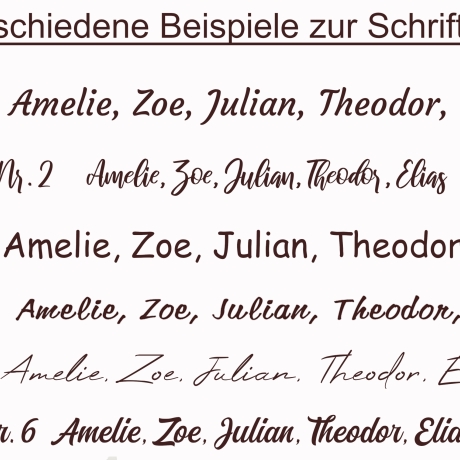 schiedene Beispiele zur Schrift
Amelie, Zoe, Julian, Theodor,
Nr. 2 Amelie, Zoe, Julian, Theodor, Elias
Amelie, Zoe, Julian, Theodor
Amelie, Zoe, Julian, Theodor,
Amelie, Zoe, Julian, Theodor, E
r. 6 Amelie, Zoe, Julian, Theodor, Elia